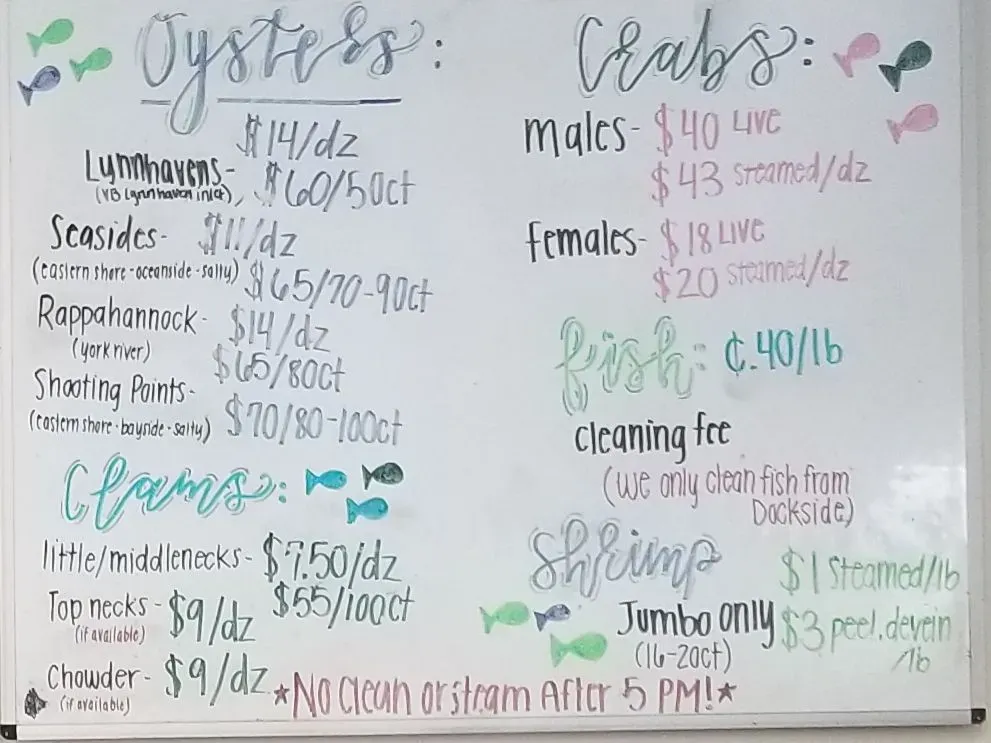 Oysters:
$14/dz
Lynnhavens-
(VB Lynnhaven inlet), $60/50ct
Seasides- $11/dz
(eastern shore-oceanside-salty) $65/70-90ct
Rappahannock- $14/dz
(york river)
$65/80ct
Shooting Points-
(eastern shore-bayside-salty) $70/80-100ct
Clams:
little/middlenecks- $7.50/dz
$55/100ct
Top necks- $9/dz
(if available)
Chowder- $9/dz
(if available)
Crabs:
males- $40 LIVE
$43 steamed/dz
females- $18 LIVE
$20 steamed/dz
fish: ¢.40/lb
cleaning fee
(we only clean fish from
Dockside)
Shrimp
$1 steamed/lb
Jumbo only $3 peel, devein
/lb
(16-20ct)
*No Clean or steam After 5 PM!*